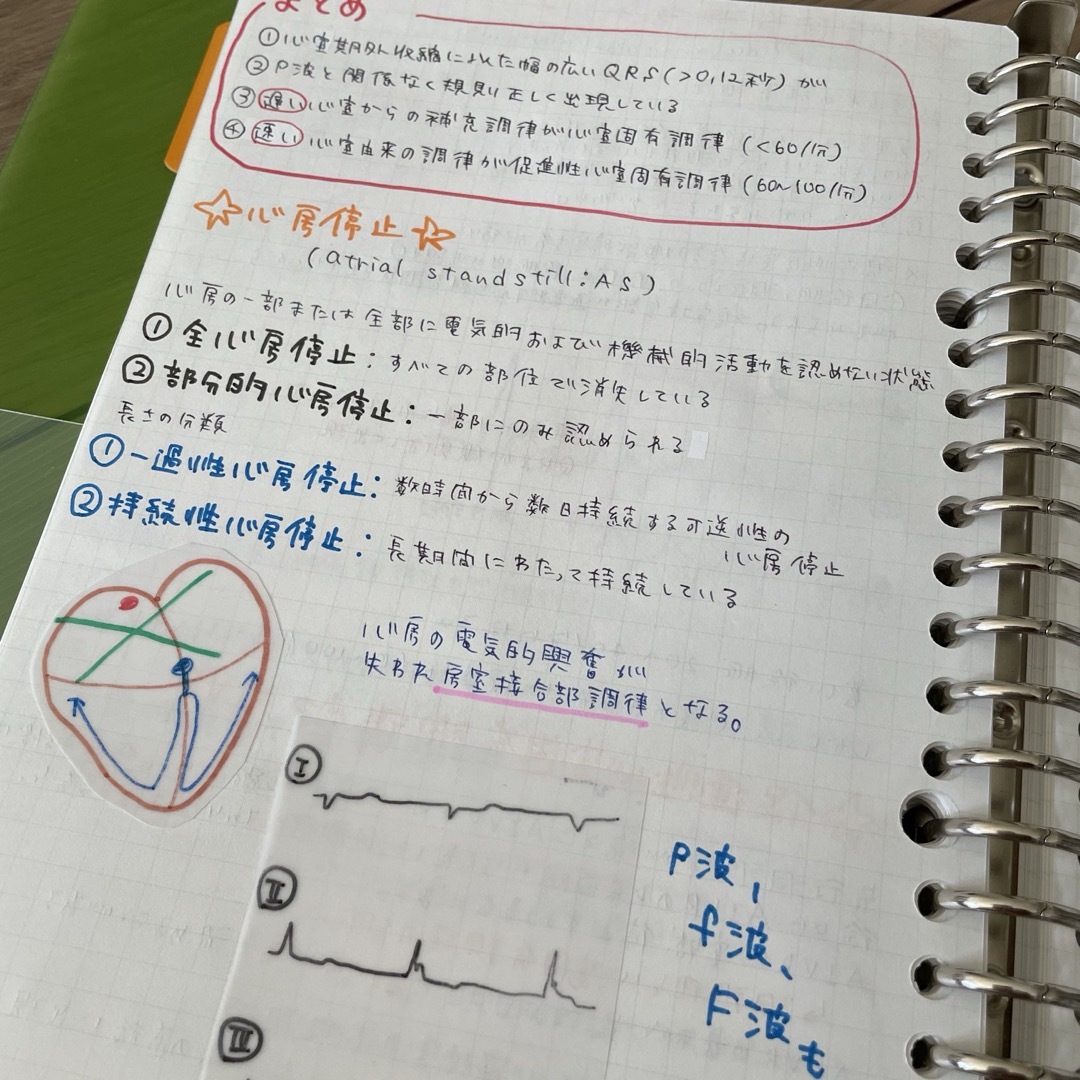 まとめ
①心室期外収縮に似た幅の広いQRS(>0,12秒)が
②P波と関係なく規則正しく出現している
③遅い心室からの補充調律が心室固有調律(<60/分)
④速い心室由来の調律が促進性心室固有調律(60~100/分)
☆心房停止☆
(atrial standstill:AS)
心房の一部または全部に電気的および機械的活動を認めない状態
①全心房停止:すべての部位で消失している
②部分的心房停止:一部にのみ認められる
長さの分類
①一過性心房停止:数時間から数日持続する可逆性の
心房停止
②持続性心房停止:長期間にわたって持続している
心房の電気的興奮が
失われ房室接合部調律となる。
Ⅰ
Ⅱ
Ⅲ
P波、
f波、
F波も